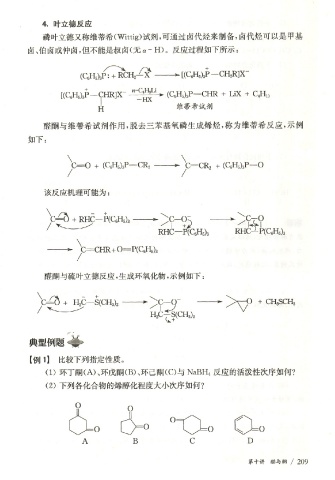 4. 叶立德反应
磷叶立德又称维蒂希(Wittig)试剂,可通过卤代烃来制备,卤代烃可以是甲基
卤、伯卤或仲卤,但不能是叔卤(无α-H)。反应过程如下所示:
(C₆H₅)₃P: + RCH₂—X ⟶ [(C₆H₅)₃P—CH₂R]X⁻
[(C₆H₅)₃P—CHR]X⁻ n-C₄H₉Li −HX (C₆H₅)₃P—CHR + LiX + C₄H₁₀
H 维蒂希试剂
醛酮与维蒂希试剂作用,脱去三苯基氧磷生成烯烃,称为维蒂希反应,示例
如下:
C=O + (C₆H₅)₃P—CR₂ ⟶ C—CR₂ + (C₆H₅)₃P—O
该反应机理可能为:
C=O + RHC—P(C₆H₅)₃ ⟶ C—O ⟶ C—O
RHC—P(C₆H₅)₃ RHC—P(C₆H₅)₃
⟶ C=CHR+O=P(C₆H₅)₃
醛酮与硫叶立德反应,生成环氧化物,示例如下:
C=O + H₂C—S(CH₃)₂ ⟶ C—O⁻ ⟶ O + CH₃SCH₃
H₂C—S(CH₃)₂
典型例题
【例1】 比较下列指定性质。
(1) 环丁酮(A)、环戊酮(B)、环己酮(C)与 NaBH₄ 反应的活泼性次序如何?
(2) 下列各化合物的烯醇化程度大小次序如何?
O O O O O O O
A B C D
第十讲 醛与酮 / 209